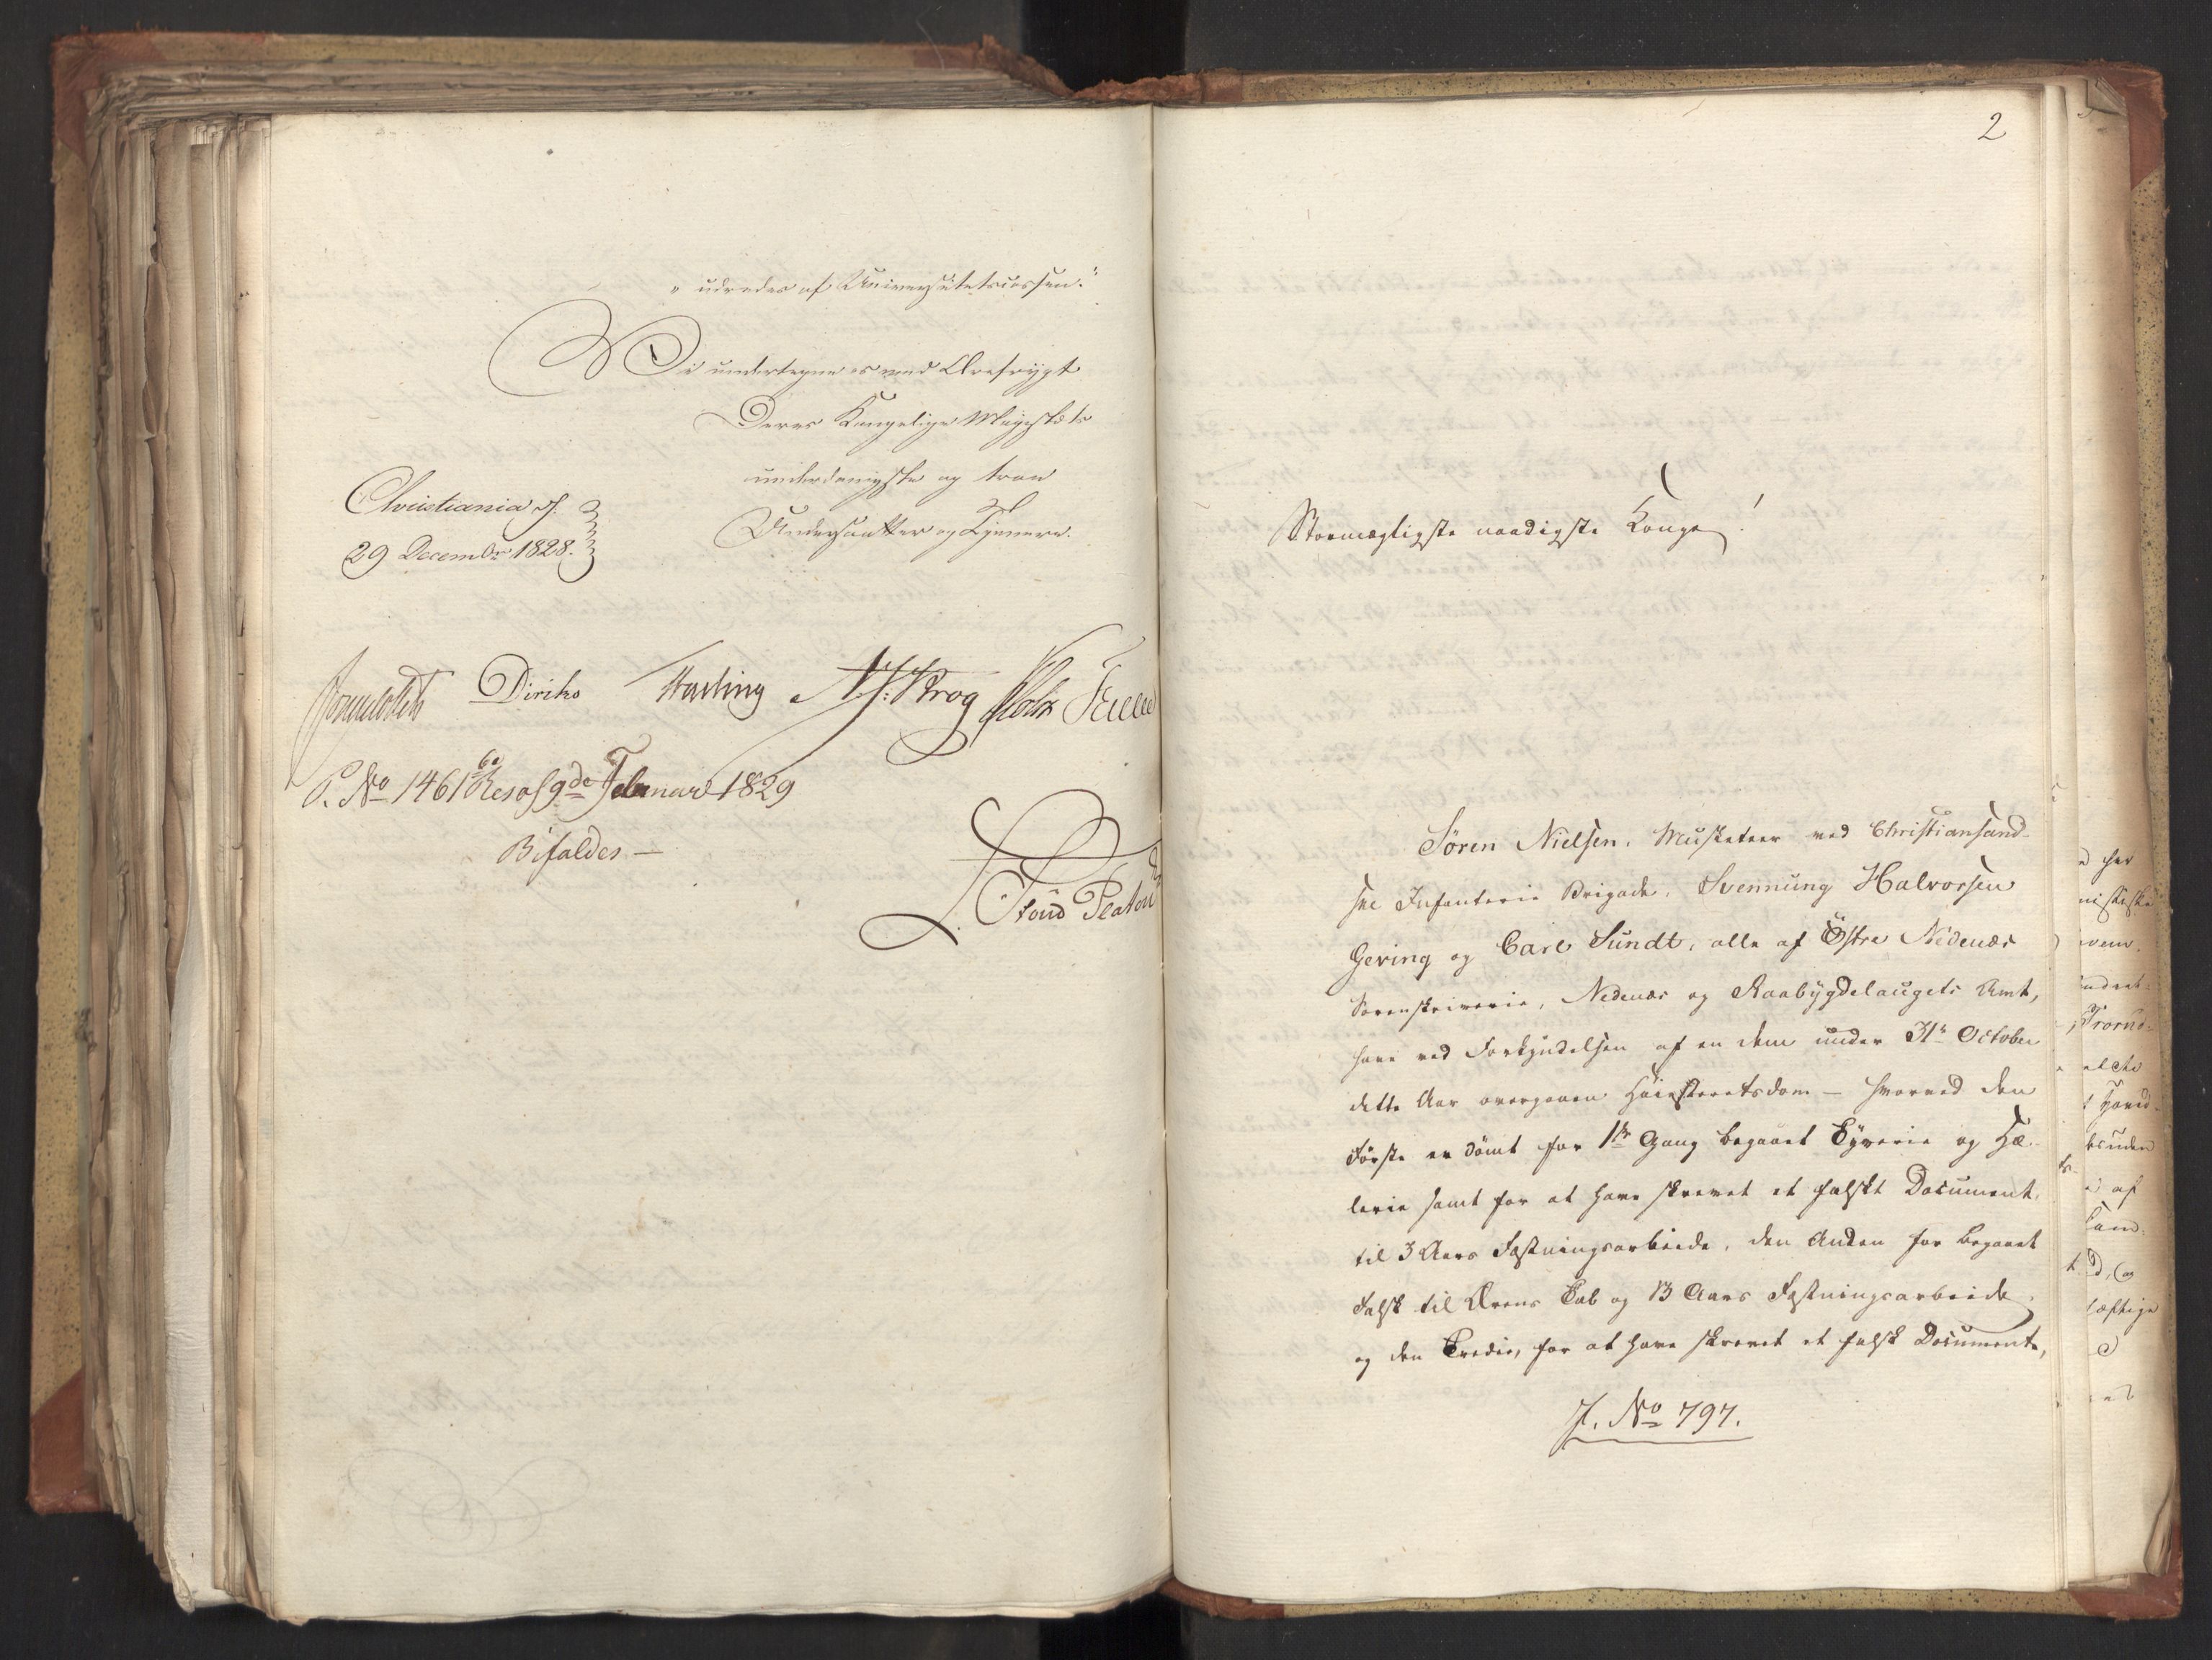 „udredes af Universitetscassen."
Vi undertegne os med Ærefrygt
Deres Kongelige Majestæts
underdanigste og troe
Undersaatter og Tjenere.
Christiania d.
29 Decembr 1828.
Diriks Harling M: Krog Holst
P. No 1461 Resol 9de Februar 1829
Bifaldes —
Stoud Platou
2
Stormægtigste naadigste Konge!
Søren Nielsen, Musketeer ved Christiansand-
ske Infanterie Brigade, Svennung Halvorsen
Gering og Carl Sundt, alle af Østre Nedenæs
Sorenskriverie, Nedenæs og Raabygdelaugets Amt,
have ved Forkyndelsen af en dem under 31te October
dette Aar overgaaen Høiesteretsdom — hvorved den
Første er dømt for 1ste Gang begaaet Tyverie og Hæ-
lerie samt for at have skrevet et falskt Document,
til 3 Aars Fæstningsarbeide, den Anden for begaaet
Falsk til Ærens Tab og 13 Aars Fæstningsarbeide,
og den Tredie, for at have skrevet et falsk Document,
J. No 797.